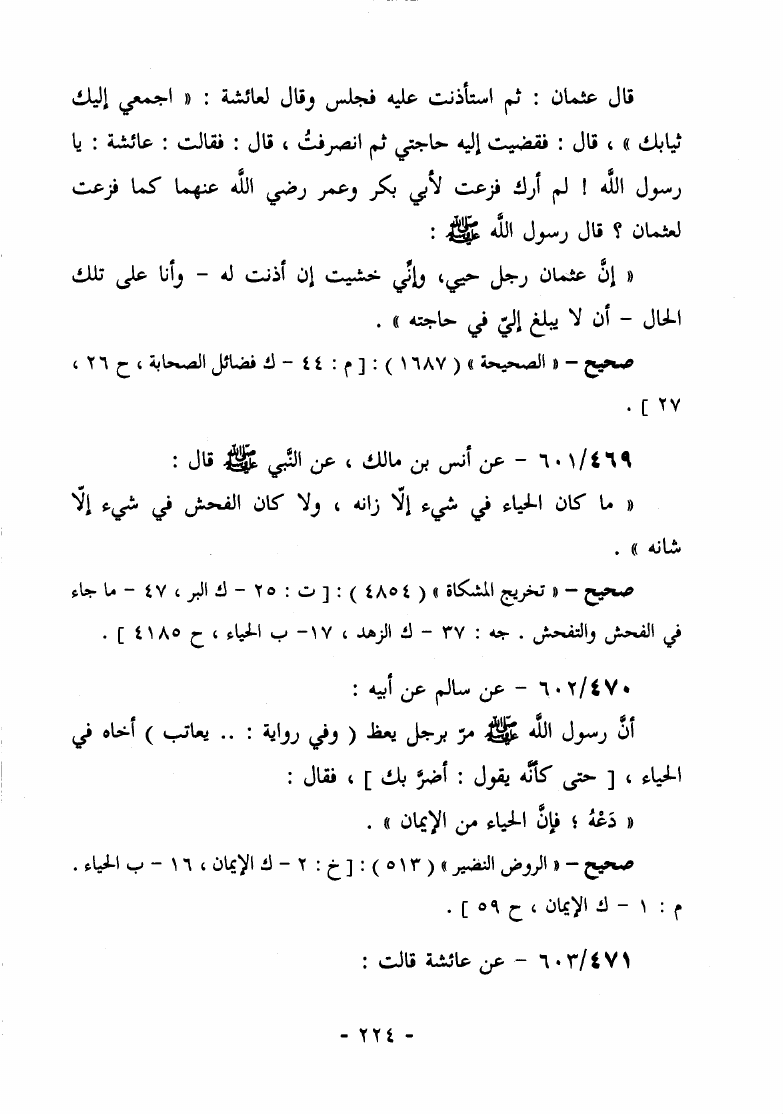 قال عثمان : ثم استأذنت عليه فجلس وقال لعائشة : « اجمعي إليك
ثيابك » ، قال : فقضيت إليه حاجتي ثم انصرفتُ ، قال : فقالت : عائشة : يا
رسول اللَّه ! لم أرك فزعت لأبي بكر وعمر رضي اللَّه عنهما كما فزعت
لعثمان ؟ قال رسول اللَّه ﷺ :
« إنَّ عثمان رجل حيي، وإنِّي خشيت إن أذنت له – وأنا على تلك
الحال – أن لا يبلغ إليّ في حاجته » .
صحيح – « الصحيحة » ( ١٦٨٧ ) : [ م : ٤٤ – ك فضائل الصحابة ، ح ٢٦ ،
٢٧ ] .
٦٠١/٤٦٩ – عن أنس بن مالك ، عن النَّبي ﷺ قال :
« ما كان الحياء في شيء إلَّا زانه ، ولا كان الفحش في شيء إلَّا
شانه » .
صحيح – « تخريج المشكاة » ( ٤٨٥٤ ) : [ ت : ٢٥ – ك البر ، ٤٧ – ما جاء
في الفحش والتفحش . جه : ٣٧ – ك الزهد ، ١٧– ب الحياء ، ح ٤١٨٥ ] .
٦٠٢/٤٧٠ – عن سالم عن أبيه :
أنَّ رسول اللَّه ﷺ مرّ برجل يعظ ( وفي رواية : .. يعاتب ) أخاه في
الحياء ، [ حتى كأنَّه يقول : أضرَّ بك ] ، فقال :
« دَعْهُ ؛ فإنَّ الحياء من الإيمان » .
صحيح – « الروض النضير » ( ٥١٣ ) : [ خ : ٢ – ك الإيمان ، ١٦ – ب الحياء .
م : ١ – ك الإيمان ، ح ٥٩ ] .
٦٠٣/٤٧١ – عن عائشة قالت :
- ٢٢٤ -